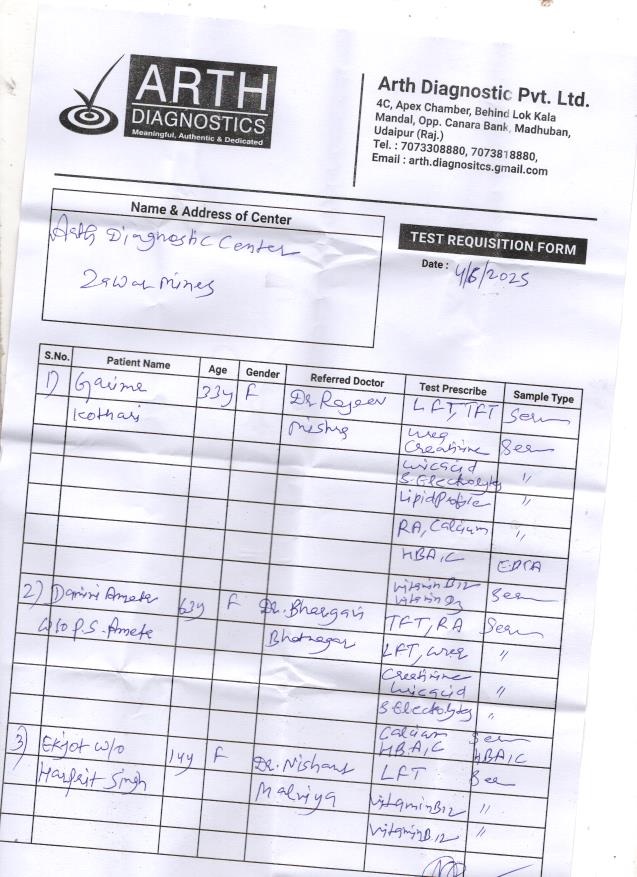 ARTH
DIAGNOSTICS
Meaningful, Authentic & Dedicated
Arth Diagnostic Pvt. Ltd.
4C, Apex Chamber, Behind Lok Kala
Mandal, Opp. Canara Bank, Madhuban,
Udaipur (Raj.)
Tel. : 7073308880, 7073818880,
Email : arth.diagnositcs.gmail.com
Name & Address of Center
Arth Diagnostic Center
Zawar Mines
TEST REQUISITION FORM
Date : 4/6/2025
S.No. Patient Name Age Gender Referred Doctor Test Prescribe Sample Type
1) Garima 33y F Dr. Rajeev LFT, TFT Serum
Kothari Mishra Urea
Creatinine Serum
Uricacid
S. Electrolytes "
Lipid Profile "
RA, Calcium "
HBA1C EDTA
Vitamin B12
Vitamin D3 Serum
2) Damini Ameta 63y F Dr. Bhargavi TFT, RA Serum
W/o P.S. Ameta Bhatnagar LFT, Urea "
Creatinine
Uricacid "
S Electrolytes "
Calcium Serum
HBA1C HBA1C
3) Ekjot w/o 14y F Dr. Nishant LFT Serum
Harprit Singh Malviya Vitamin B12 "
Vitamin B12 "